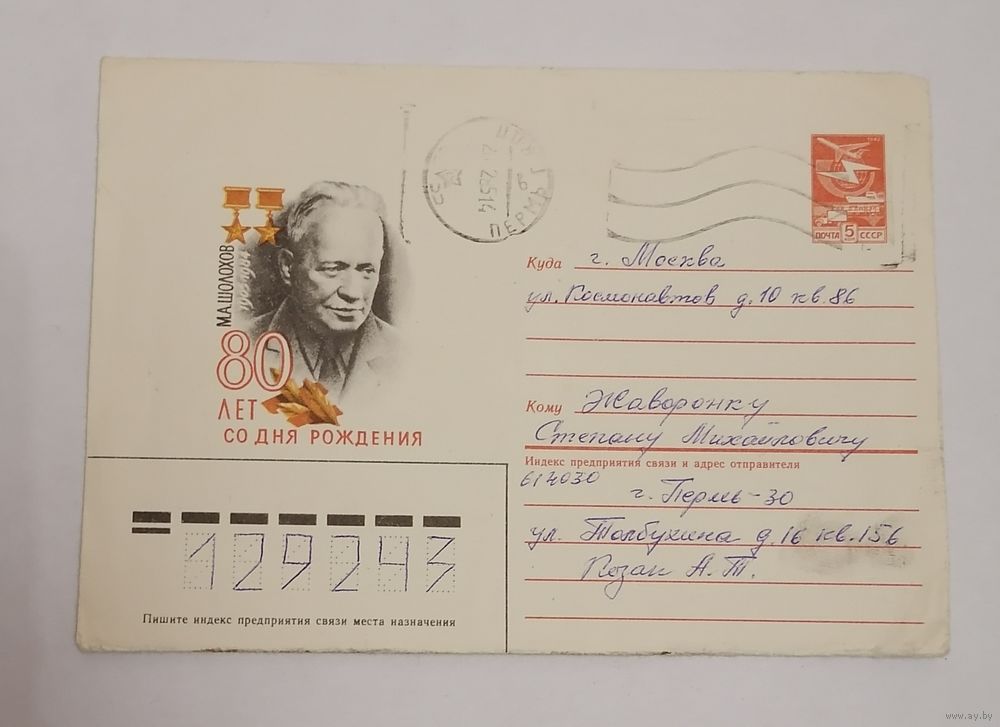 М.А.ШОЛОХОВ
80
ЛЕТ
СО ДНЯ РОЖДЕНИЯ
ПЕРМЬ
ПОЧТА 5 СССР
Куда г. Москва
ул. Космонавтов д. 10 кв. 86
Кому Жаворонку
Степану Михайловичу
Индекс предприятия связи и адрес отправителя
614030 г. Пермь-30
ул. Толбухина д. 16 кв. 156
Козак А. Т.
129243
Пишите индекс предприятия связи места назначения
www.ay.by